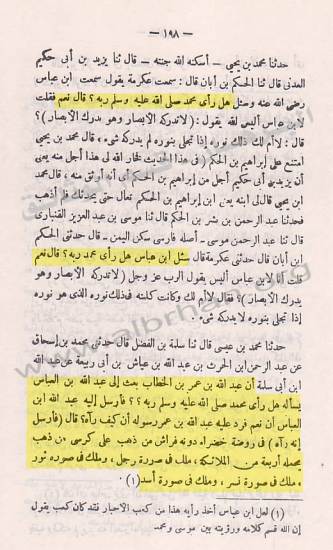 - ١٩٨ -
حدثنا محمد بن يحيى - أسكنه الله جنته - قال ثنا يزيد بن أبى حكيم
العدنى قال ثنا الحكم بن أبان قال : سمعت عكرمة يقول سمعت ابن عباس
رضى الله عنه وسئل هل رأى محمد صلى الله عليه وسلم ربه ؟ قال نعم فقلت
لابن عباس أليس الله يقول : (لاتدركه الأبصار وهو يدرك الأبصار) ؟
قال : لاأم لك ذلك نوره إذا تجلى بنوره لم يدركه شىء ، قال محمد بن يحيى
امتنع على إبراهيم بن الحكم فى هذا الحديث فخار الله لى هذا أجل منه يعنى
أن يزيد بن أبى حكيم أجل من إبراهيم بن الحكم أى أنه أوثق منه ، قال محمد
ابن يحيى قال لى ابنه يعنى ابن إبراهيم بن الحكم تعال حتى يحدثك فلم أذهب
فحدثنا عبد الرحمن بن بشر بن الحكم قال ثنا موسى بن عبد العزيز القنبارى
قال ثنا عبد الرحمن موسى - أصله فارسى سكن اليمن - قال حدثنى الحكم
ابن أبان قال حدثنى عكرمة قال سئل ابن عباس هل رأى محمد ربه ؟ قال نعم
قلت أنا لابن عباس أليس يقول الرب عز وجل (لاتدركه الأبصار وهو
يدرك الأبصار) ؟ فقال لاأم لك وكانت كلمته فذلك نوره الذى هو نوره
إذا تجلى بنوره لايدركه شىء .
حدثنا محمد بن عيسى قال ثنا سلمة بن الفضل قال حدثنى محمد بن إسحاق
عن عبد الرحمن ابن الحرث بن عبد الله بن عياش بن أبى ربيعة عن عبد الله
ابن أبى سلمة أن عبد الله بن عمر بن الخطاب بعث إلى عبد الله بن العباس
يسأله هل رأى محمد صلى الله عليه وسلم ربه ؟ ؟ فأرسل إليه عبد الله ابن
العباس أن نعم فرد عليه عبد الله بن عمر رسوله أن كيف رآه؟ قال (فأرسل
إنه رآه ) فى روضة خضراء دونه فراش من ذهب على كرسى من ذهب
يحمله أربعة من الملائكة، ملك فى صورة رجل ، وملك فى صورة ثور
، وملك فى صورة نسر ، وملك فى صورة أسد(١)
(١) لعل ابن عباس أخذ رأيه هذا من كعب الأحبار فقد كان كعب يقول
إن الله قسم كلامه ورؤيته بين موسى ومحمد .
www.albrhan.org